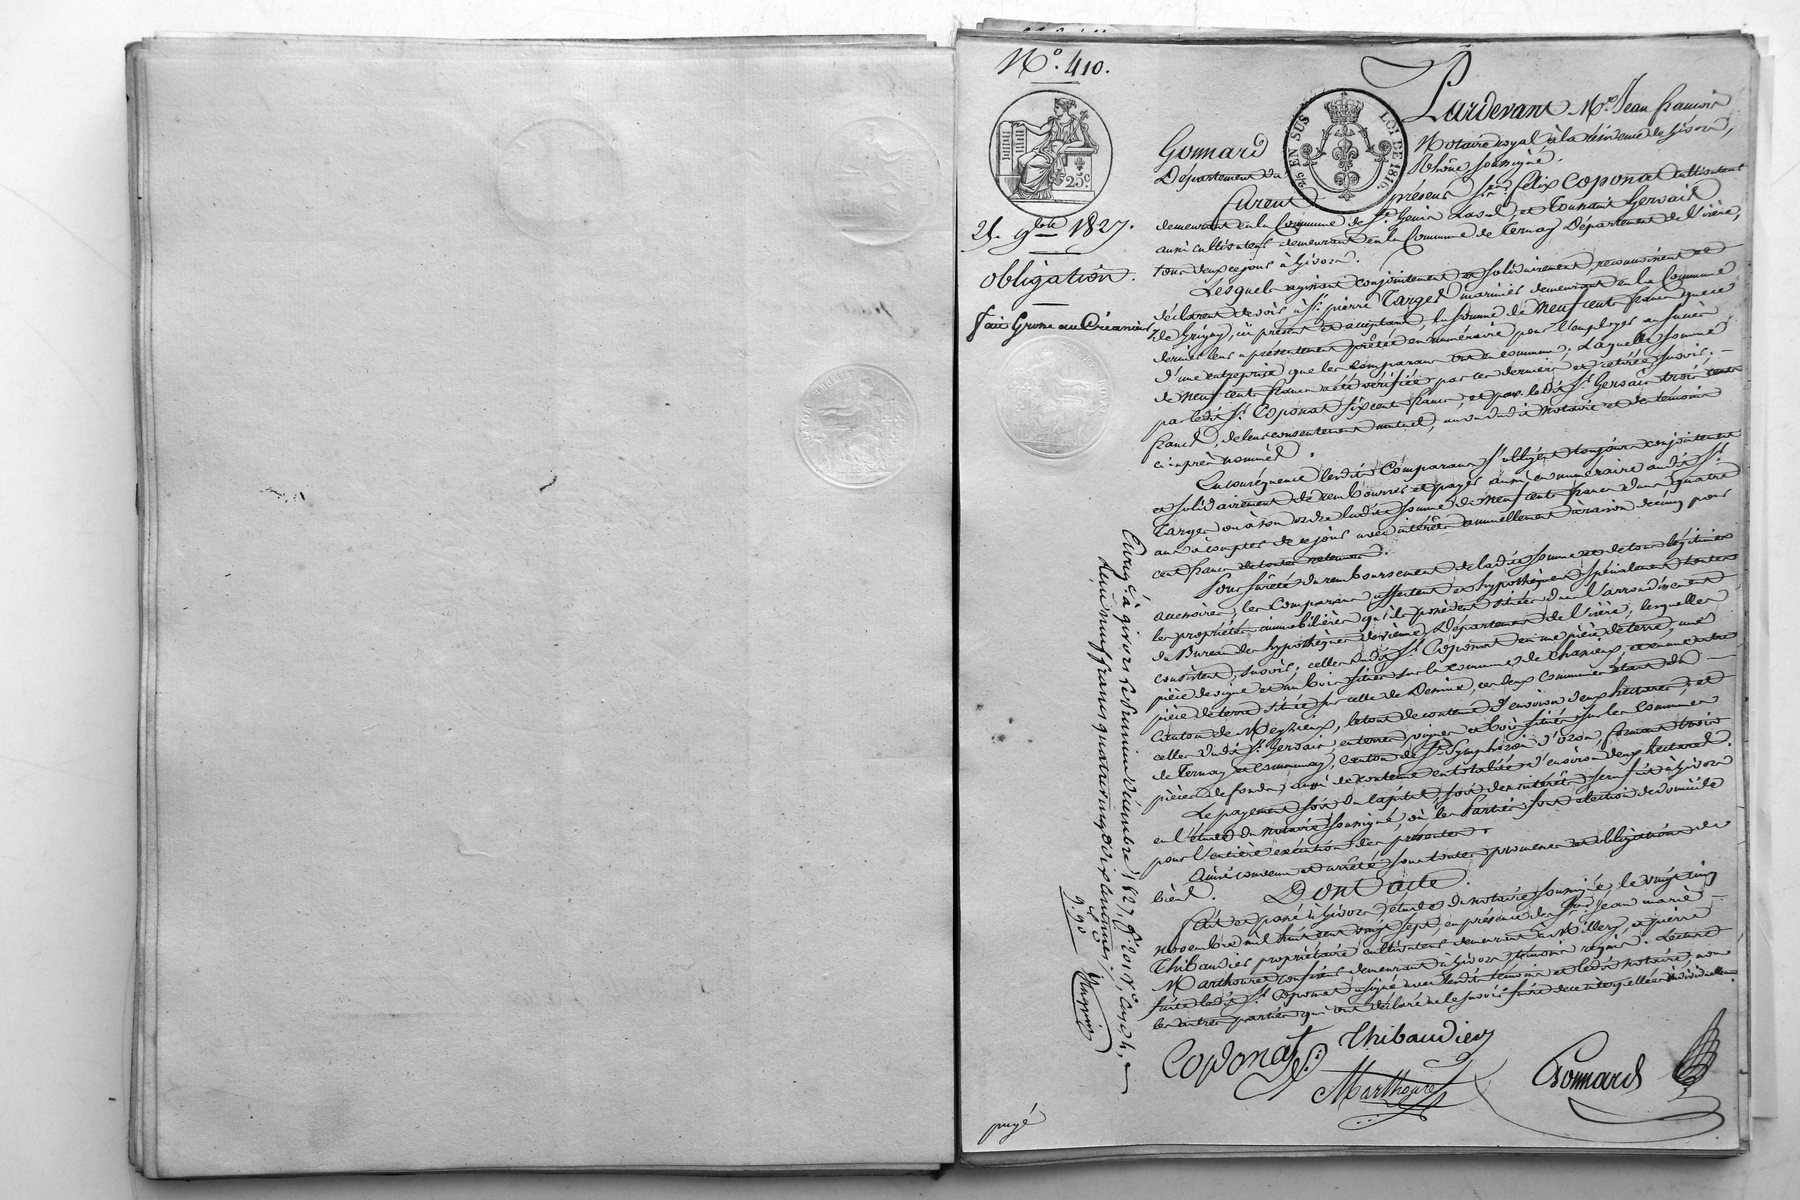 N.° 410.
25.c
EN SUS
LOI DE 1816
25. 9.bre 1827.
obligation.
fait Grosse au Créancier
Pardevant M.re Jean françois
Gonnard Notaire royal à la résidence de Givors,
Département du Rhône soussigné.
Furent présens S.rs félix Coponat cultivateur
demeurant en la Commune de S.t Genis Laval, et Toussaint Gervais
aussi cultivateur demeurant en la Commune de Ternay Département de l'isère,
tous deux ce jour à Givors.
Lesquels agissant conjointement et solidairement, reconnaissent et
déclarent devoir à S.r pierre Targes marinier demeurant en la Commune
de Grigny, ici présent et acceptant, la somme de Neuf cents francs que ce
dernier leur a présentement prêtée en numéraire pour l'employer au
d'une entreprise que les Comparans ont en commun. Laquelle somme
de Neuf cents francs a été vérifiée par ces derniers et retirée savoir :
par ledit S.r Coponat six cents francs, et par ledit S.r Gervais trois cents
francs, de leur consentement mutuel, au vu dudit Notaire et des témoins
ci après nommés.
En conséquence lesdits Comparans s'obligent toujours conjointement
et solidairement de rembourser et payer aussi en numéraire audit S.r
Targes ou à son ordre ladite somme de Neuf cents francs dans quatre
ans à compter de ce jour avec intérêts annuellement à raison de cinq pour
cent francs de toutes retenues.
Pour sûreté du remboursement de ladite somme et de tous légitimes
accessoires, les Comparans affectent et hypothèquent spécialement toutes
les propriétés immobilières qu'ils possèdent situées dans l'arrondissement
du Bureau des hypothèques de vienne, Département de l'isère, lesquelles
consistent, savoir : celles dudit S.r Coponat en une pièce de terre, une
pièce de vigne et un bois situés sur la commune de Chassieu, et en une autre
pièce de terre située sur celle de Decines, ces deux Communes étant du
Canton de Meyzieux, le tout de contenue d'environ deux hectares, et
celles dudit S.r Gervais, en terres, vignes et bois situés sur les Communes
de Ternay et Communay, canton de S.t Symphorien d'ozon, formant trois
pièces de fonds, aussi de contenue en totalité d'environ deux hectares.
Le payement soit du Capital, soit des intérêts sera fait à Givors
en l'étude du notaire soussigné, où les Parties font élection de domicile
pour l'entière exécution des présentes.
Ainsi convenu et arrêté sous toutes promesses et obligations de
biens. Dont acte.
fait et passé à Givors, étude du notaire soussigné, le vingt cinq
novembre mil huit cent vingt sept, en présence des S.rs Jean marie
Thibaudier propriétaire cultivateur demeurant à Millery, et pierre
Marthouret confiseur demeurant à Givors témoins requis. Lecture
faite ledit S.r Coponat a signé avec lesdits témoins et ledit notaire, non
les autres parties qui ont déclaré ne le savoir faire de ce interpellées individuellement.
Coponat Thibaudier
Marthouret Gonnard
Enreg.é à givors le premier décembre 1827 f.o 201 r.o case 4,
reçu neuf francs quatre vingt dix centimes.
9.90
payé